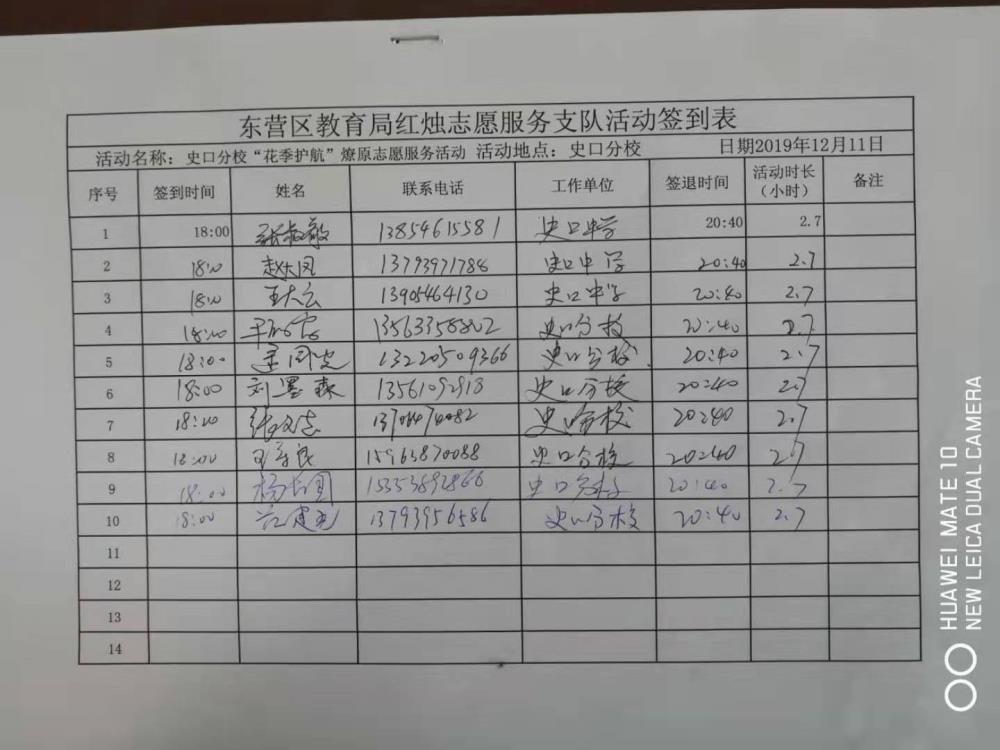 东营区教育局红烛志愿服务支队活动签到表
活动名称：史口分校“花季护航”燎原志愿服务活动 活动地点：史口分校 日期2019年12月11日
序号 签到时间 姓名 联系电话 工作单位 签退时间 活动时长（小时） 备注
1 18:00 13854615581 史口中学 20:40 2.7
2 18:00 13793971786 史口中学 20:40 2.7
3 18:00 王大云 13905464130 史口中学 20:40 2.7
4 18:00 13563358802 史口分校 20:40 2.7
5 18:00 13220509366 史口分校 20:40 2.7
6 18:00 刘墨森 史口分校 20:40 2.7
7 18:00 张文志 史口分校 20:40 2.7
8 18:00 15965870088 史口分校 20:40 2.7
9 18:00 史口分校 20:40 2.7
10 18:00 13793956586 史口分校 20:40 2.7
11
12
13
14
HUAWEI MATE 10
NEW LEICA DUAL CAMERA